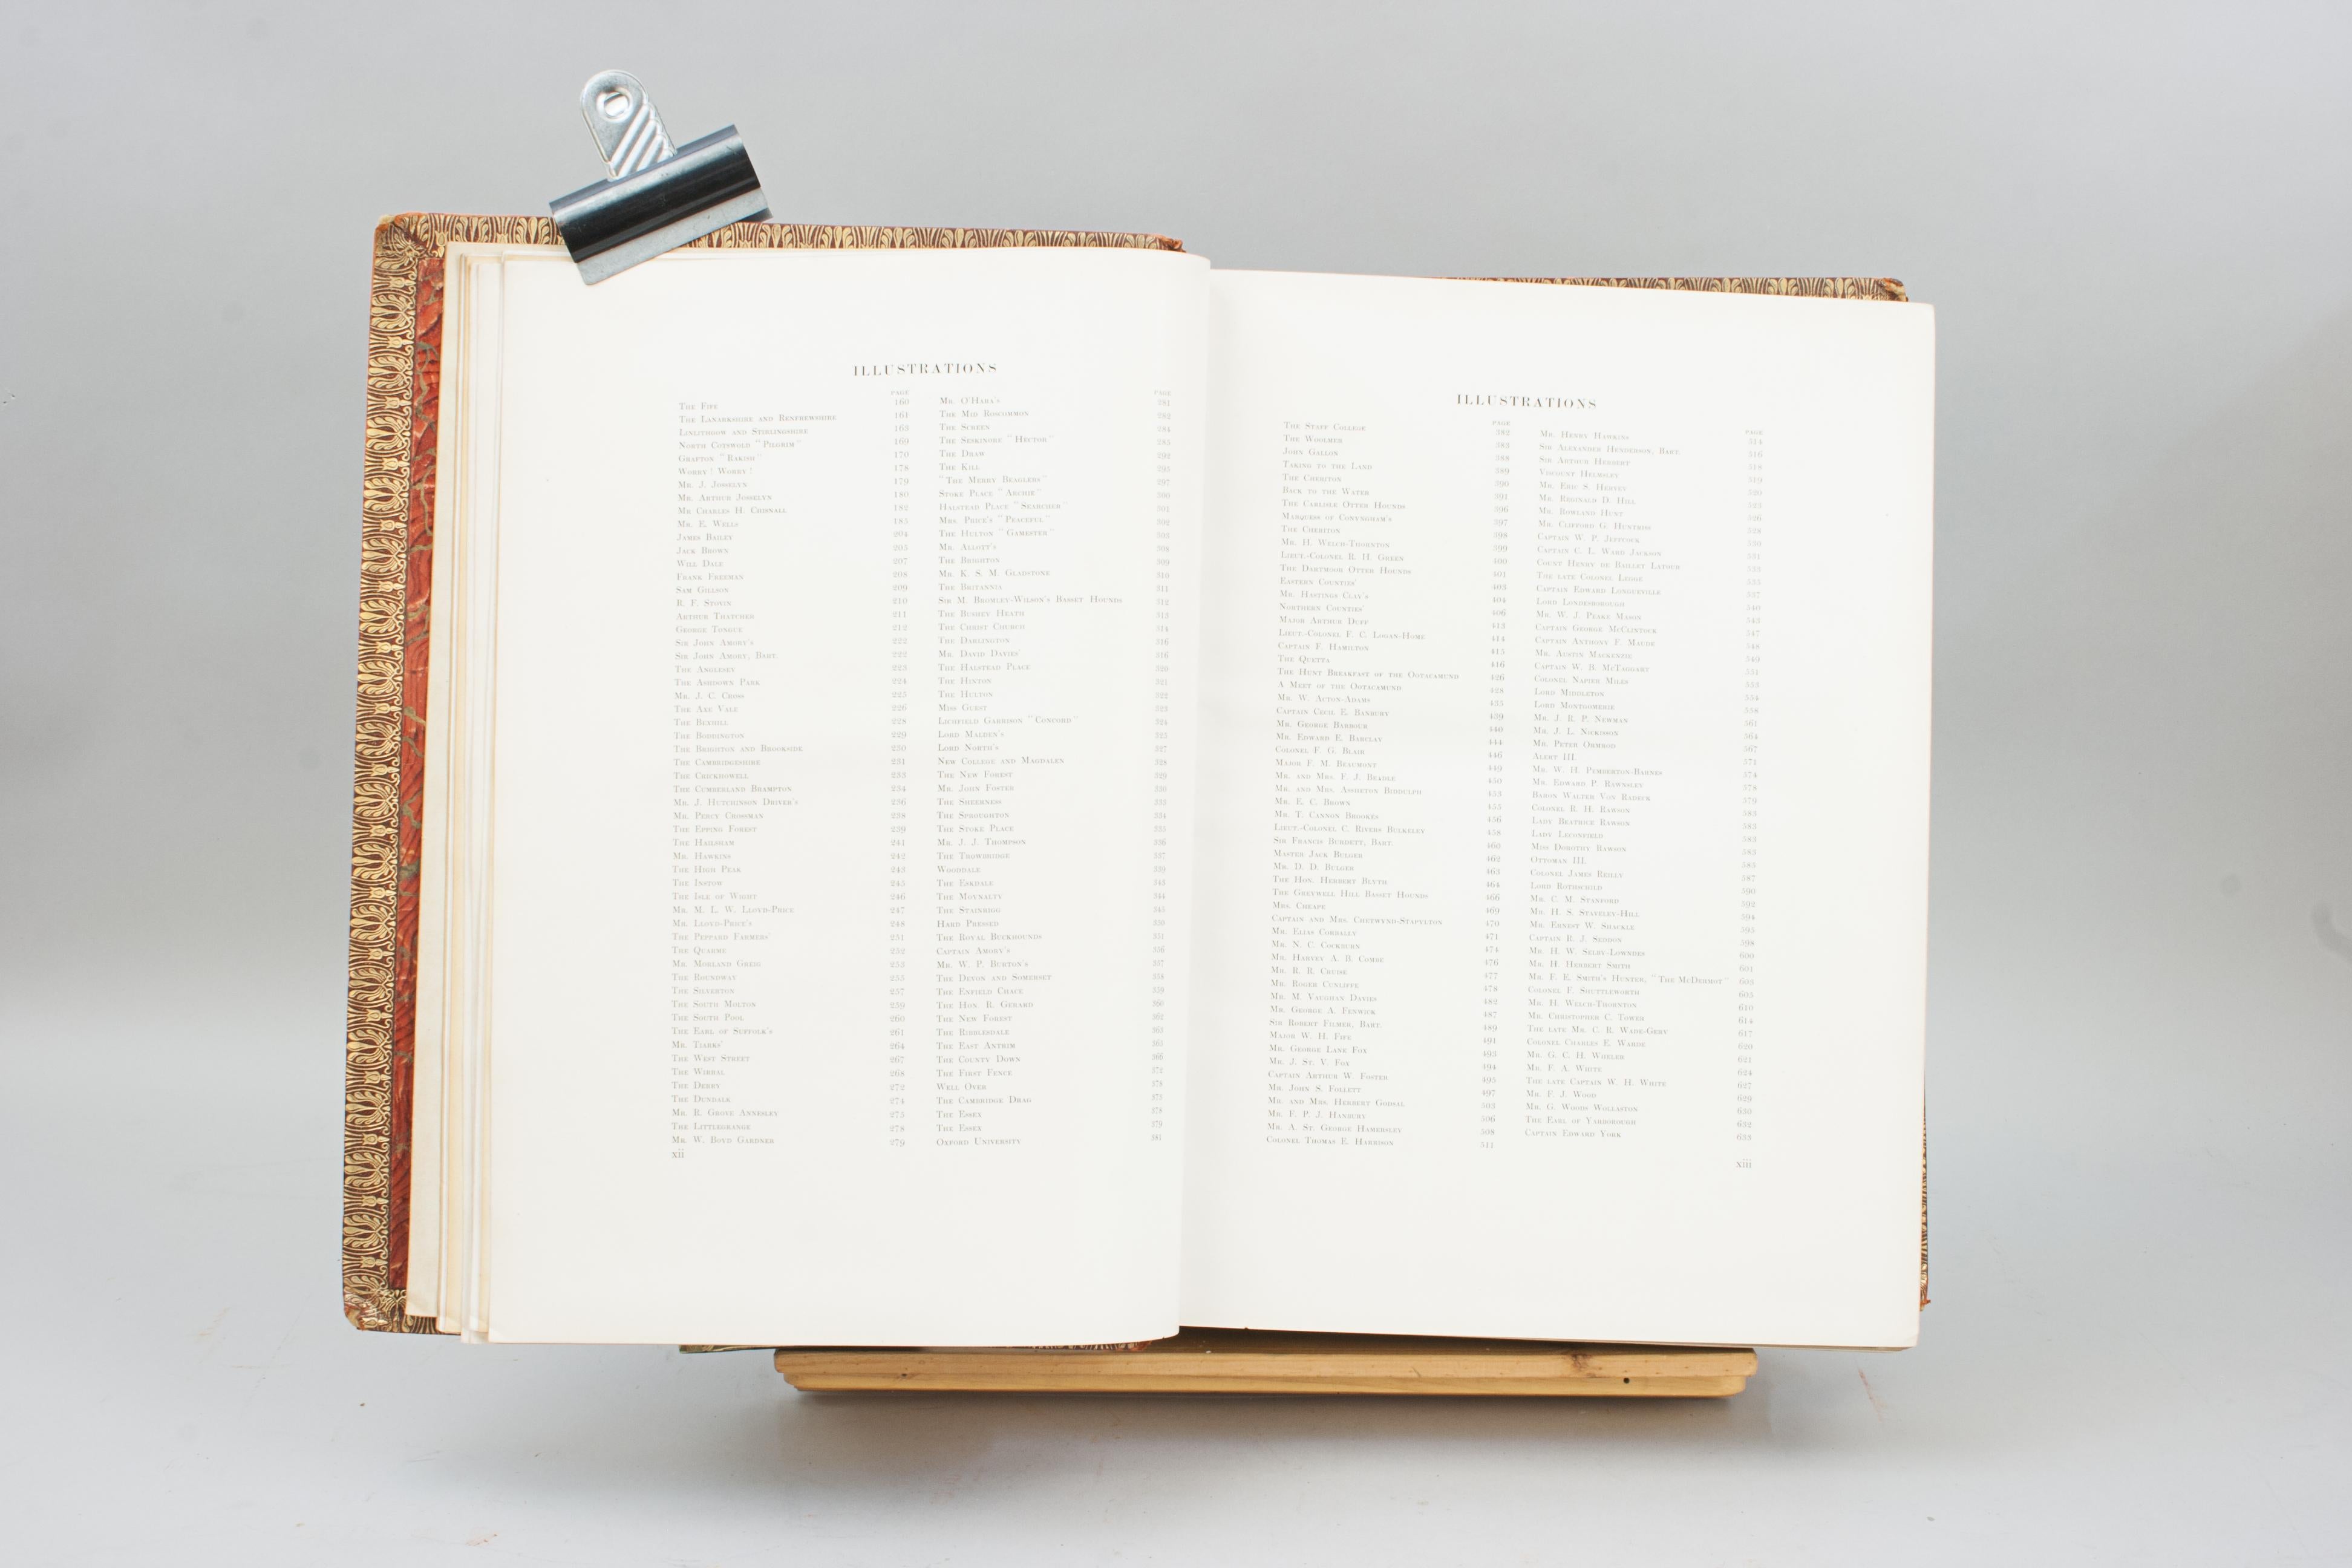 ILLUSTRATIONS
PAGE
The Fife 160
The Lanarkshire and Renfrewshire 161
Linlithgow and Stirlingshire 163
North Cotswold "Pilgrim" 169
Grafton "Rakish" 170
Worry! Worry! 178
Mr. J. Josselyn 179
Mr. Arthur Josselyn 180
Mr Charles H. Chisnall 182
Mr. E. Wells 185
James Bailey 204
Jack Brown 205
Will Dale 207
Frank Freeman 208
Sam Gillson 209
B. F. Stovin 210
Arthur Thatcher 211
George Tongue 212
Sir John Amory's 222
Sir John Amory, Bart. 222
The Anglesey 223
The Ashdown Park 224
Mr. J. C. Cross 225
The Axe Vale 226
The Bexhill 228
The Boddington 229
The Brighton and Brookside 230
The Cambridgeshire 231
The Crickhowell 233
The Cumberland Brampton 234
Mr. J. Hutchinson Driver's 236
Mr. Percy Crossman 238
The Epping Forest 239
The Hailsham 241
Mr. Hawkins 242
The High Peak 243
The Instow 245
The Isle of Wight 246
Mr. M. L. W. Lloyd-Price 247
Mr. Lloyd-Price's 248
The Peppard Farmers' 251
The Quarme 252
Mr. Morland Greig 253
The Roundway 255
The Silverton 257
The South Molton 259
The South Pool 260
The Earl of Suffolk's 261
Mr. Tiarks' 264
The West Street 267
The Wirral 268
The Derby 272
The Dundalk 274
Mr. R. Grove Annesley 275
The Littlegrange 278
Mr. W. Boyd Gardner 279
xii
PAGE
Mr. O'Hara's 281
The Mid Roscommon 282
The Screen 284
The Seskinore "Hector" 285
The Draw 292
The Kill 293
"The Merry Beaglers" 297
Stoke Place "Archie" 300
Halstead Place "Searcher" 301
Mrs. Price's "Peaceful" 304
The Hulton "Gamester" 305
Mr. Allott's 308
The Brighton 309
Mr. K. S. M. Gladstone 310
The Britannia 311
Sir M. Bromley-Wilson's Basset Hounds 312
The Bushey Heath 313
The Christ Church 314
The Darlington 316
Mr. David Davies' 316
The Halstead Place 320
The Hinton 321
The Hulton 322
Miss Guest 323
Lichfield Garrison "Concord" 324
Lord Malden's 325
Lord North's 327
New College and Magdalen 328
The New Forest 329
Mr. John Foster 330
The Sheerness 333
The Sproughton 334
The Stoke Place 335
Mr. J. J. Thompson 336
The Trowbridge 337
Wooddale 339
The Eskdale 343
The Moynalty 344
The Stainrigg 345
Hard Pressed 350
The Royal Buckhounds 351
Captain Amory's 356
Mr. W. P. Burton's 357
The Devon and Somerset 358
The Enfield Chace 359
The Hon. R. Gerard 360
The New Forest 362
The Ribblesdale 363
The East Antrim 365
The County Down 366
The First Fence 372
Well Over 374
The Cambridge Drag 377
The Essex 378
The Essex 379
Oxford University
ILLUSTRATIONS
PAGE
The Staff College 382
The Woolmer 383
John Gallon 388
Taking to the Land 389
The Cheriton 390
Back to the Water 391
The Carlisle Otter Hounds 396
Marquess of Conyngham's 397
The Cheriton 398
Mr. H. Welch-Thornton 399
Lieut.-Colonel R. H. Green 400
The Dartmoor Otter Hounds 401
Eastern Counties' 403
Mr. Hastings Clay's 404
Northern Counties' 406
Major Arthur Duff 413
Lieut.-Colonel F. C. Logan-Home 414
Captain F. Hamilton 415
The Quetta 416
The Hunt Breakfast of the Ootacamund 426
A Meet of the Ootacamund 428
Mr. W. Acton-Adams 435
Captain Cecil E. Banbury 439
Mr. George Barbour 440
Mr. Edward E. Barclay 444
Colonel F. G. Blair 446
Major F. M. Beaumont 449
Mr. and Mrs. F. J. Beadle 450
Mr. and Mrs. Assheton Biddulph 453
Mr. E. C. Brown 455
Mr. T. Cannon Brookes 456
Lieut.-Colonel C. Rivers Bulkeley 458
Sir Francis Burdett, Bart. 460
Master Jack Bulger 462
Mr. D. D. Bulger 463
The Hon. Herbert Blyth 464
The Greywell Hill Basset Hounds 466
Mrs. Cheape 469
Captain and Mrs. Chetwynd-Stapylton 470
Mr. Elias Corbally 471
Mr. N. C. Cockburn 474
Mr. Harvey A. B. Combe 476
Mr. R. R. Cruise 477
Mr. Roger Cunliffe 478
Mr. M. Vaughan Davies 482
Mr. George A. Fenwick 487
Sir Robert Filmer, Bart. 489
Major W. H. Fife 491
Mr. George Lane Fox 493
Mr. J. St. V. Fox 494
Captain Arthur W. Foster 495
Mr. John S. Follett 497
Mr. and Mrs. Herbert Godsal 503
Mr. F. P. J. Hanbury 506
Mr. A. St. George Hamersley 508
Colonel Thomas E. Harrison 511
PAGE
Mr. Henry Hawkins 514
Sir Alexander Henderson, Bart. 516
Sir Arthur Herbert 518
Viscount Helmsley 519
Mr. Eric S. Hervey 520
Mr. Reginald D. Hill 523
Mr. Rowland Hunt 526
Mr. Clifford G. Huntriss 528
Captain W. P. Jeffcock 530
Captain C. L. Ward Jackson 531
Count Henry de Baillet Latour 533
The late Colonel Legge 535
Captain Edward Longueville 537
Lord Londesborough 540
Mr. W. J. Peake Mason 543
Captain George McClintock 547
Captain Anthony F. Maude 548
Mr. Austin Mackenzie 549
Captain W. B. McTaggart 551
Colonel Napier Miles 553
Lord Middleton 554
Lord Montgomerie 558
Mr. J. R. P. Newman 561
Mr. J. L. Nickisson 564
Mr. Peter Ormrod 567
Alert III. 571
Mr. W. H. Pemberton-Barnes 574
Mr. Edward P. Rawnsley 578
Baron Walter Von Radeck 579
Colonel R. H. Rawson 583
Lady Beatrice Rawson 583
Lady Leconfield 583
Miss Dorothy Rawson 583
Ottoman III. 585
Colonel James Reilly 587
Lord Rothschild 590
Mr. C. M. Stanford. 592
Mr. H. S. Staveley-Hill 594
Mr. Ernest W. Shackle 595
Captain R. J. Seddon 598
Mr. H. W. Selby-Lowndes 600
Mr. H. Herbert Smith 601
Mr. F. E. Smith's Hunter, "The McDermot" 603
Colonel F. Shuttleworth 605
Mr. H. Welch-Thornton 610
Mr. Christopher C. Tower 614
The late Mr. C. R. Wade-Gery 617
Colonel Charles E. Warde 620
Mr. G. C. H. Wheler 621
Mr. F. A. White 624
The late Captain W. H. White 627
Mr. F. J. Wood 629
Mr. G. Woods Wollaston 630
The Earl of Yarborough 632
Captain Edward York 633
xiii